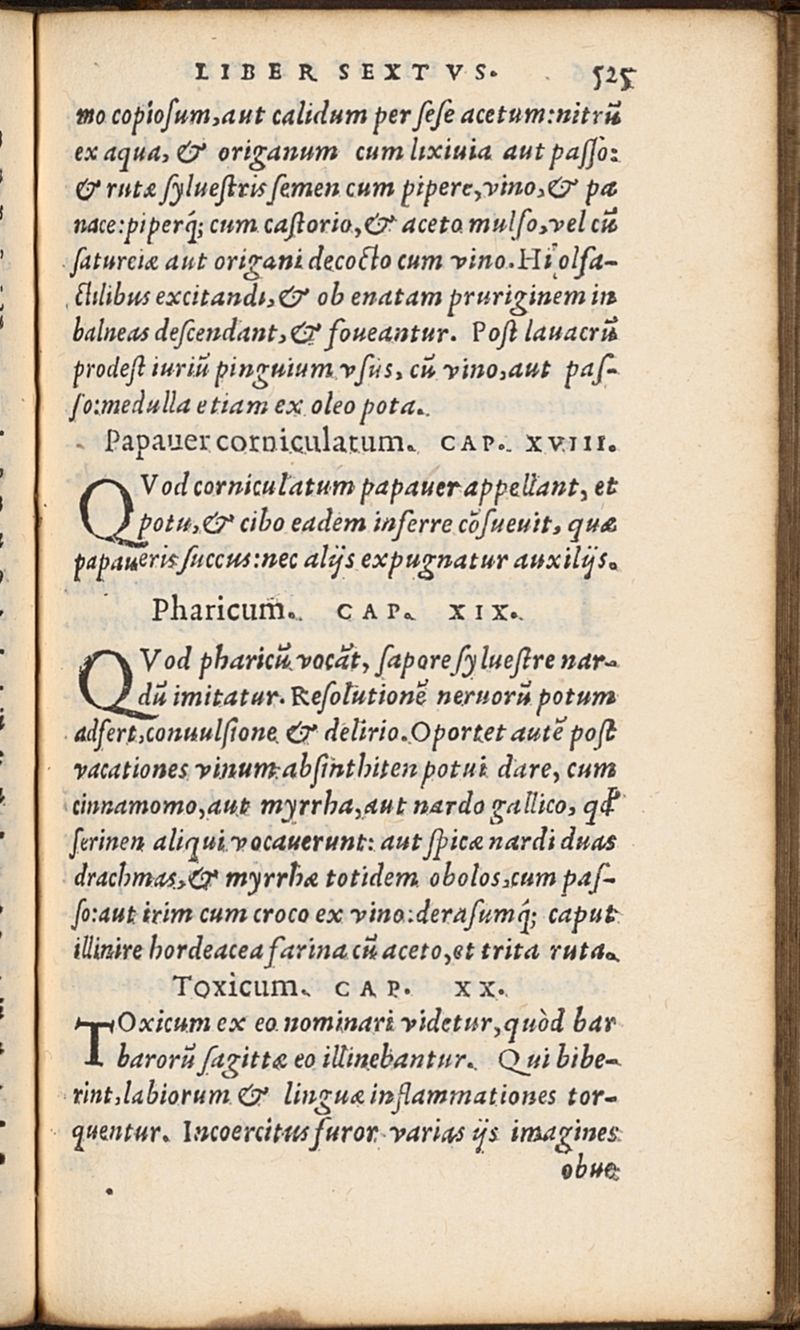 LIBER SEXTVS. 525
mo copioſum, aut calidum per ſeſe acetum: nitrũ
ex aqua, & origanum cum lixiuia aut paſſo:
& rutæ ſylueſtris ſemen cum pipere, vino, & pa
nace: piperq́; cum caſtorio, & aceto mulſo, vel cũ
ſatureiæ aut origani decocto cum vino. Hi olfa-
ctilibus excitandi, & ob enatam pruriginem in
balneas deſcendant, & foueantur. Poſt lauacrũ
prodeſt iuriũ pinguium vſus, cũ vino, aut paſ-
ſo: medulla etiam ex oleo pota.
Papauer corniculatum. CAP. XVIII.
QVod corniculatum papauer appellant, et
potu, & cibo eadem inferre cõſueuit, quæ
papaueris ſuccus: nec alijs expugnatur auxilijs.
Pharicum. CAP. XIX.
QVod pharicũ vocãt, ſapore ſylueſtre nar-
dũ imitatur. Reſolutionẽ neruorũ potum
adfert, conuulſione & delirio. Oportet autẽ poſt
vacationes vinum abſinthiten potui dare, cum
cinnamomo, aut myrrha, aut nardo gallico, qđ
ſerinen aliqui vocauerunt: aut ſpicæ nardi duas
drachmas, & myrrhæ totidem obolos, cum paſ-
ſo: aut irim cum croco ex vino: deraſumq́; caput
illinire hordeacea farina cũ aceto, et trita ruta.
Toxicum. CAP. XX.
TOxicum ex eo nominari videtur, quòd bar
barorũ ſagittæ eo illinebantur. Qui bibe-
rint, labiorum & linguæ inflammationes tor-
quentur. Incoercitus furor varias ijs imagines
obue